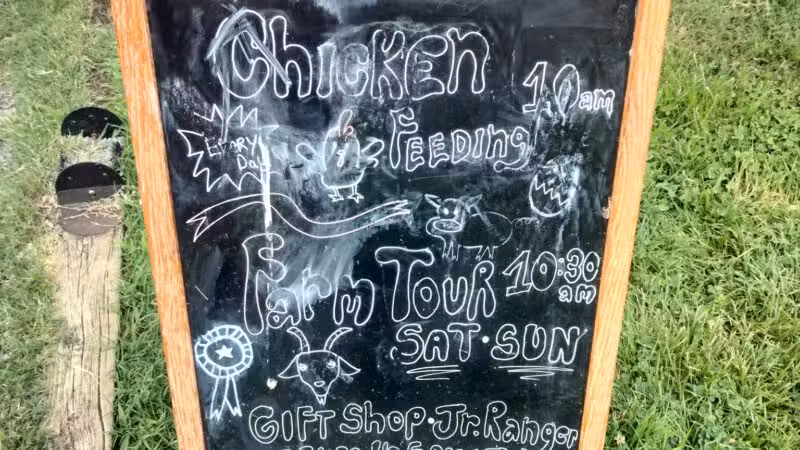 Chicken
10am
Every
Day
Feeding
Farm Tour 10:30
am
Sat · Sun
Gift Shop · Jr. Ranger